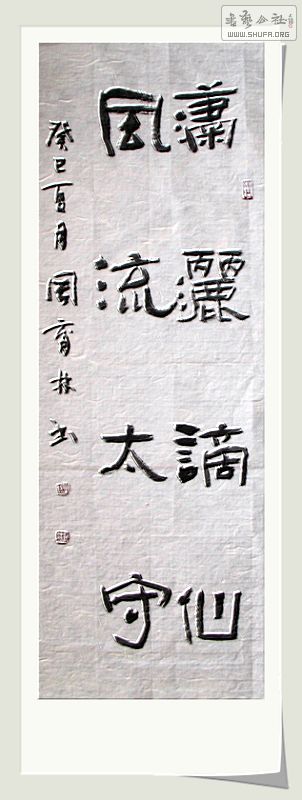 瀟灑謫仙
風流太守
癸巳夏月周齋林书
书艺公社
WWW.SHUFA.ORG